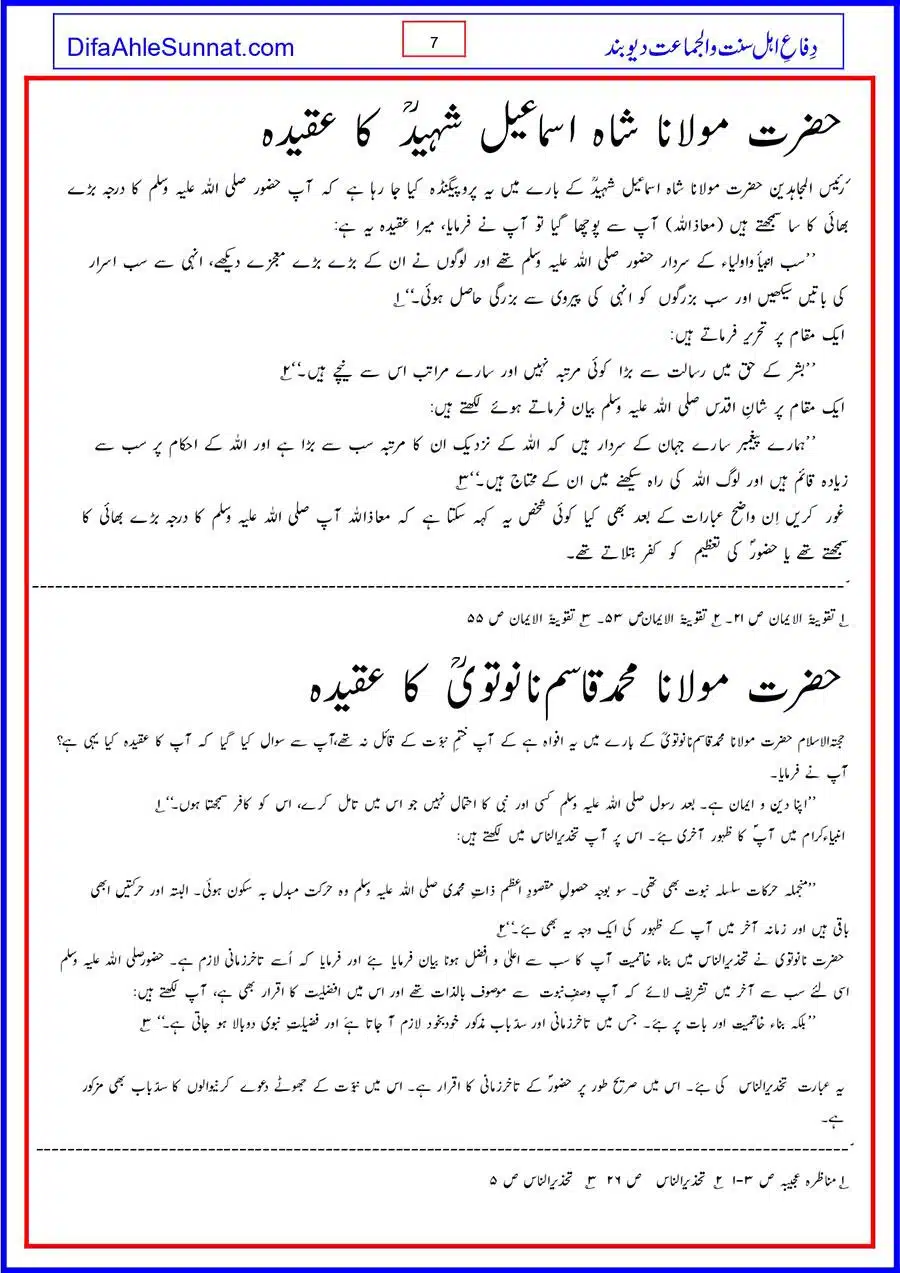 DifaAhleSunnat.com
7
دِفاعِ اہل سنت والجماعت دیوبند
حضرت مولانا شاہ اسماعیل شہیدؒ کا عقیدہ
رئیس المجاہدین حضرت مولانا شاہ اسماعیل شہیدؒ کے بارے میں یہ پروپیگنڈہ کیا جا رہا ہے کہ آپ حضور صلی اللہ علیہ وسلم کا درجہ بڑے
بھائی کا سا سمجھتے ہیں (معاذاللہ) آپ سے پوچھا گیا تو آپ نے فرمایا، میرا عقیدہ یہ ہے:
’’سب انبیأ واولیاء کے سردار حضور صلی اللہ علیہ وسلم تھے اور لوگوں نے ان کے بڑے بڑے معجزے دیکھے، انہی سے سب اسرار
کی باتیں سیکھیں اور سب بزرگوں کو انہی کی پیروی سے بزرگی حاصل ہوئی۔‘‘۱؂
ایک مقام پر تحریر فرماتے ہیں:
’’بشر کے حق میں رسالت سے بڑا کوئی مرتبہ نہیں اور سارے مراتب اس سے نیچے ہیں۔‘‘۲؂
ایک مقام پر شانِ اقدس صلی اللہ علیہ وسلم بیان فرماتے ہوئے لکھتے ہیں:
’’ہمارے پیغمبر سارے جہان کے سردار ہیں کہ اللہ کے نزدیک ان کا مرتبہ سب سے بڑا ہے اور اللہ کے احکام پر سب سے
زیادہ قائم ہیں اور لوگ اللہ کی راہ سیکھنے میں ان کے محتاج ہیں۔‘‘۳؂
غور کریں اِن واضح عبارات کے بعد بھی کیا کوئی شخص یہ کہہ سکتا ہے کہ معاذاللہ آپ صلی اللہ علیہ وسلم کا درجہ بڑے بھائی کا
سمجھتے تھے یا حضورؐ کی تعظیم کو کفر بتلاتے تھے۔
۱؂ تقویۃ الایمان ص ۲۱۔ ۲؂ تقویۃ الایمان ص ۵۳۔ ۳؂ تقویۃ الایمان ص ۵۵
حضرت مولانا محمد قاسم نانوتویؒ کا عقیدہ
حجتہ الاسلام حضرت مولانا محمد قاسم نانوتویؒ کے بارے میں یہ افواہ ہے کے آپ ختمِ نبوّت کے قائل نہ تھے،آپ سے سوال کیا گیا کہ آپ کا عقیدہ کیا یہی ہے؟
آپ نے فرمایا۔
’’اپنا دین و ایمان ہے۔ بعد رسول صلی اللہ علیہ وسلم کسی اور نبی کا احتمال نہیں جو اس میں تامل کرے، اس کو کافر سمجھتا ہوں۔‘‘۱؂
انبیاءکرام میں آپؐ کا ظہور آخری ہے۔ اس پر آپ تحذیرالناس میں لکھتے ہیں:
’’منجملہ حرکات سلسلہ نبوت بھی تھی۔ سو بوجہ حصولِ مقصودِ اعظم ذاتِ محمدی صلی اللہ علیہ وسلم وہ حرکت مبدل بہ سکون ہوئی۔ البتہ اور حرکتیں ابھی
باقی ہیں اور زمانہ آخر میں آپ کے ظہور کی ایک وجہ یہ بھی ہے۔‘‘۲؂
حضرت نانوتوی نے تحذیرالناس میں بناء خاتمیت آپ کا سب سے اعلیٰ و افضل ہونا بیان فرمایا ہے اور فرمایا کہ اُسے تاخرزمانی لازم ہے۔ حضورصلی اللہ علیہ وسلم
اسی لئے سب سے آخر میں تشریف لائے کہ آپ وصفِ نبوت سے موصوف بالذات تھے اور اس میں افضلیت کا اقرار بھی ہے، آپ لکھتے ہیں:
’’بلکہ بناء خاتمیت اور بات پر ہے۔ جس میں تاخرزمانی اور سدّباب مذکور خودبخود لازم آ جاتا ہے اور فضیلتِ نبوی دوبالا ہو جاتی ہے۔‘‘ ۳؂
یہ عبارت تحذیرالناس کی ہے۔ اس میں صریح طور پر حضورؐ کے تاخرزمانی کا اقرار ہے۔ اس میں نبوّت کے جھوٹے دعوے کرنیوالوں کا سدّباب بھی مزکور
ہے۔
۱؂ مناظرہ عجیبہ ص ۳-۱۰ ۲؂ تحذیرالناس ص ۲۶ ۳؂ تحذیرالناس ص ۵